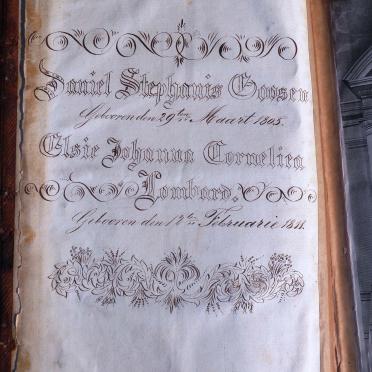 Daniel Stephanis Goosen
Gebooren den 29ten Maart 1805.
Elsie Johanna Corneliea
Lombard.
Gebooren den 12ten Februarie 1811.